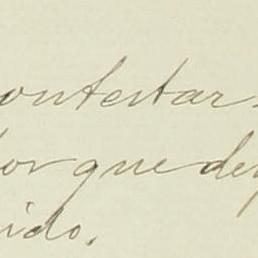 contestar
por que de
ido.